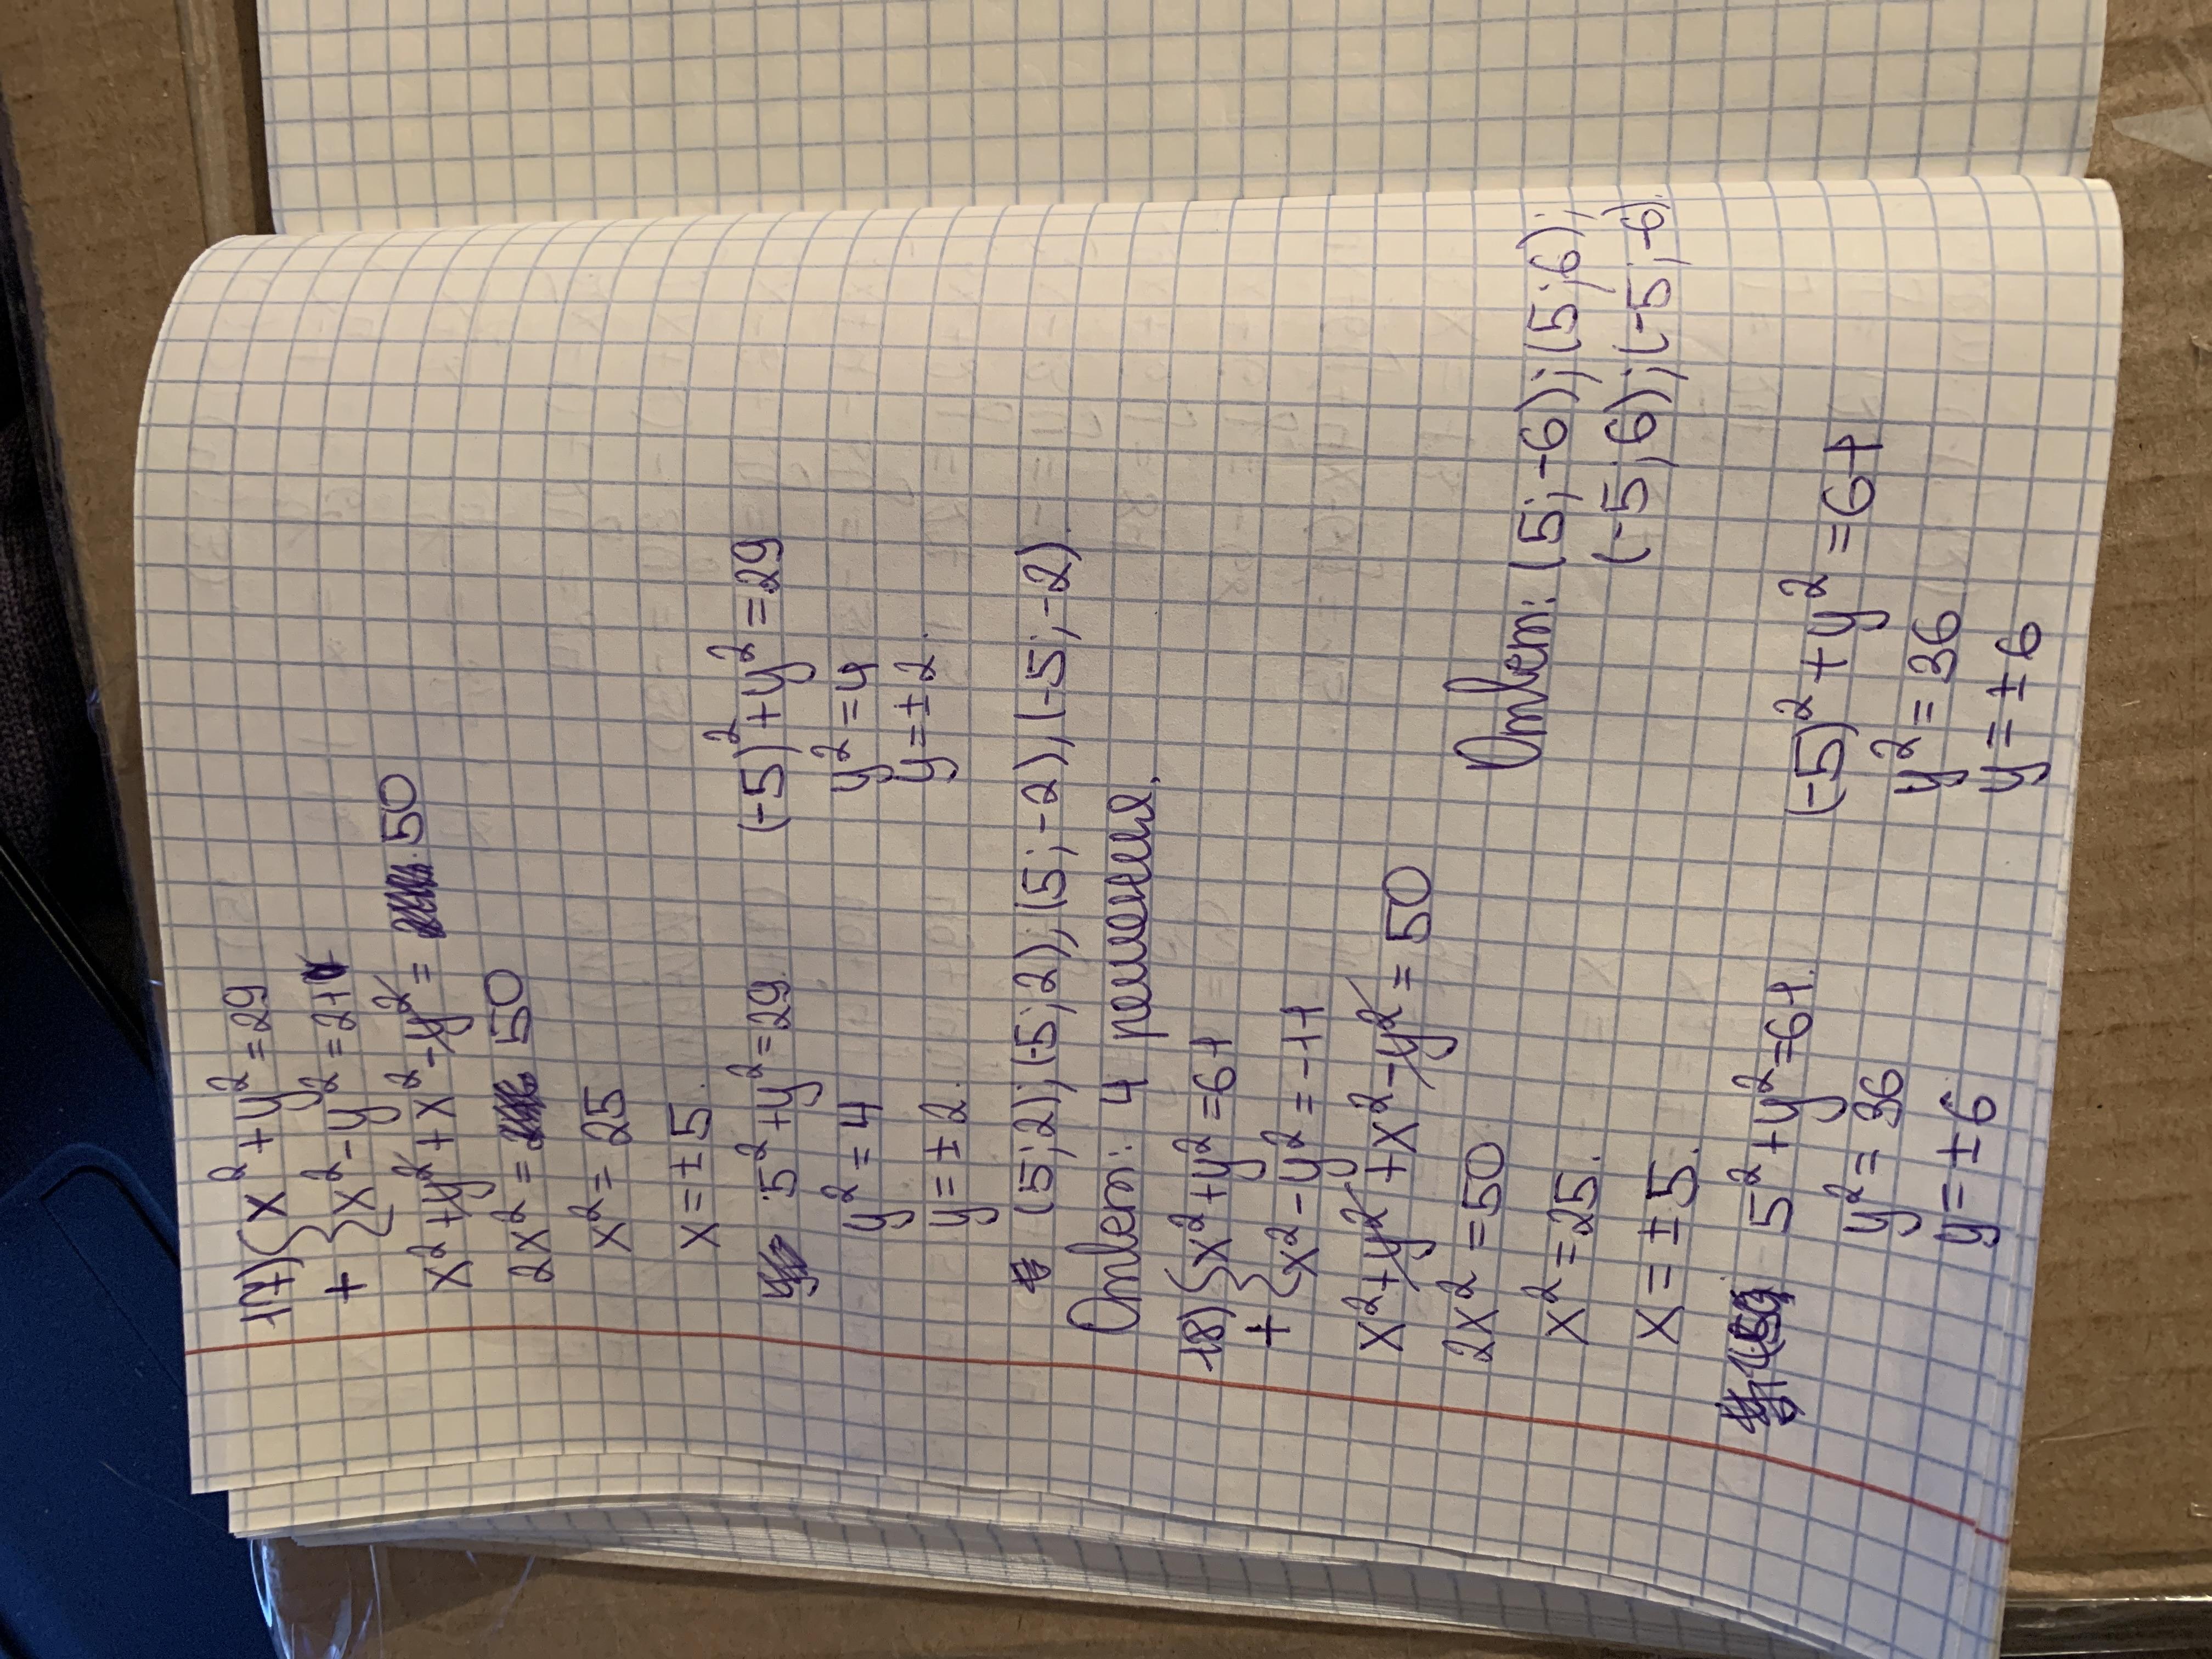 17) { x² + y² = 29
+ { x² - y² = 21
x² + y² + x² - y² = 50
2x² = 50
x² = 25
x = ± 5.
5² + y² = 29. (-5)² + y² = 29
y² = 4 y² = 4
y = ± 2. y = ± 2.
(5; 2); (-5; 2); (5; -2); (-5; -2).
Ответ: 4 решения.
18) { x² + y² = 61
+ { x² - y² = -11
x² + y² + x² - y² = 50
2x² = 50
x² = 25.
x = ± 5.
Ответ: (5; -6); (5; 6);
(-5; 6); (-5; -6).
5² + y² = 61. (-5)² + y² = 61
y² = 36 y² = 36
y = ± 6 y = ± 6